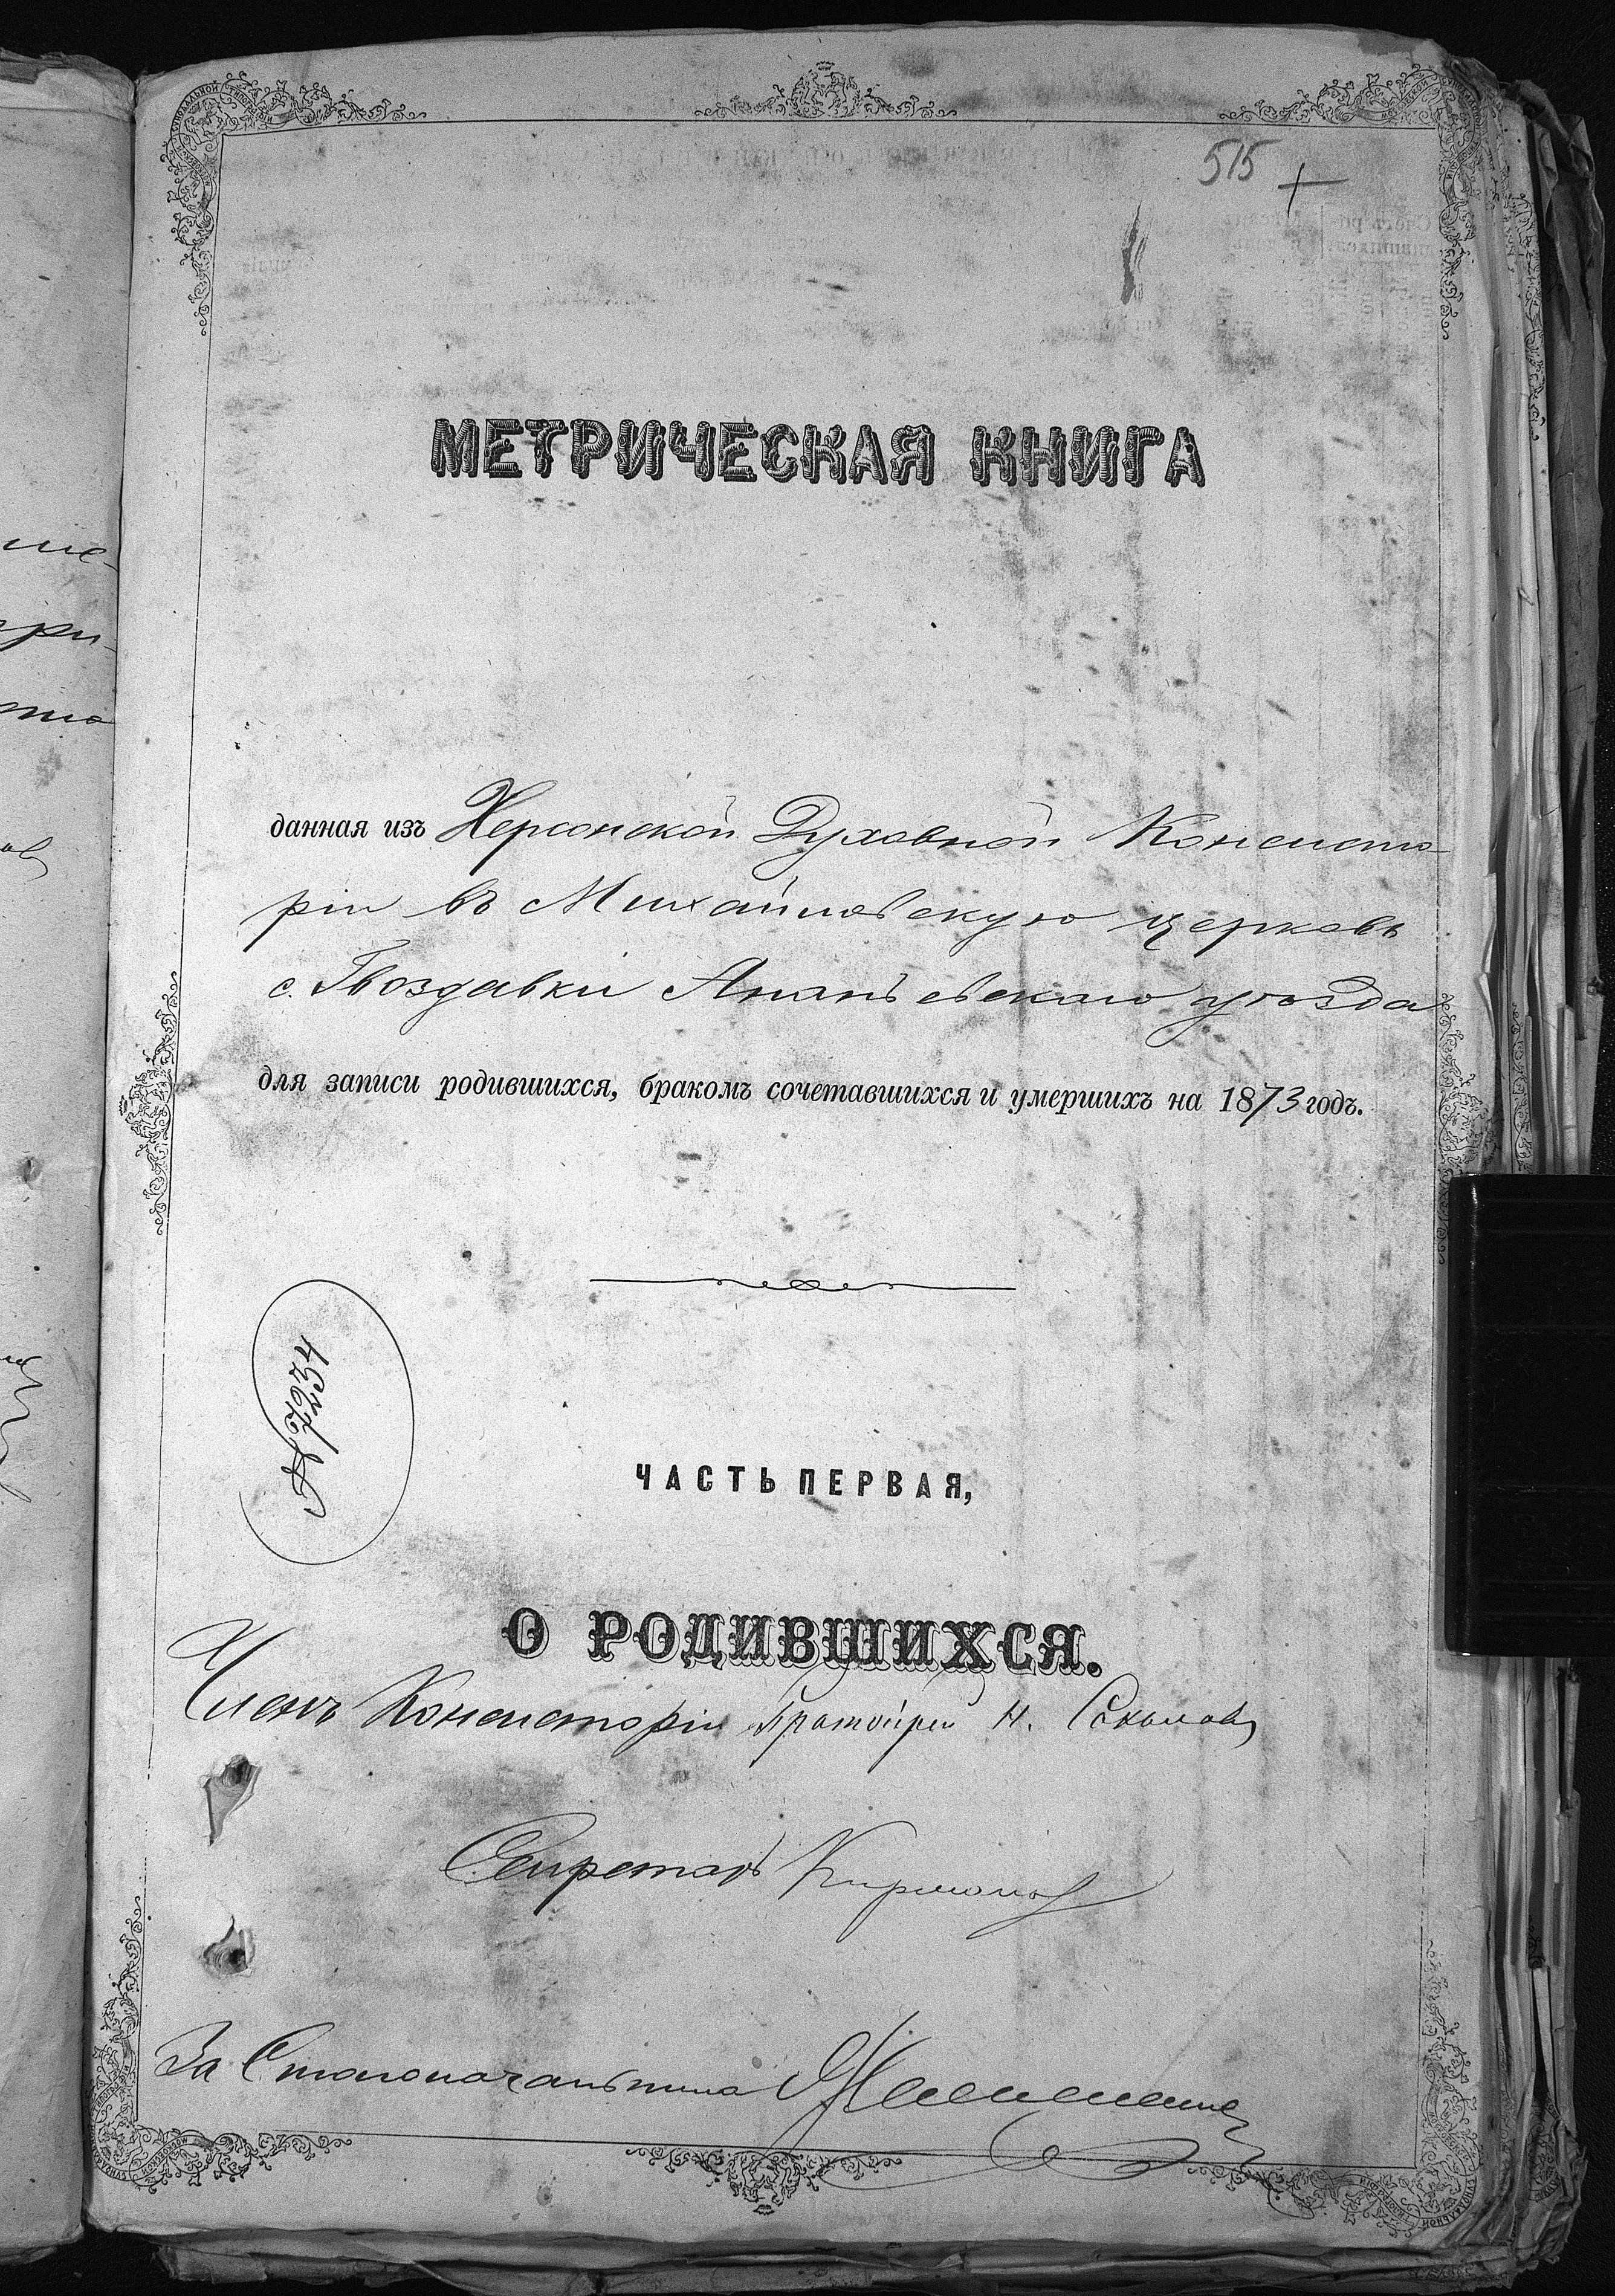 515
МЕТРИЧЕСКАЯ КНИГА
данная изъ Херсонской Духовной Консисто-
ріи въ Михайловскую церковь
с. Гвоздавки Ананьевскаго уѣзда
для записи родившихся, бракомъ сочетавшихся и умершихъ на 1873 годъ.
№ 7234
ЧАСТЬ ПЕРВАЯ,
О РОДИВШИХСЯ.
Членъ Консисторіи Протоіерей Н. Соколовъ
Секретарь
За Столоначальника